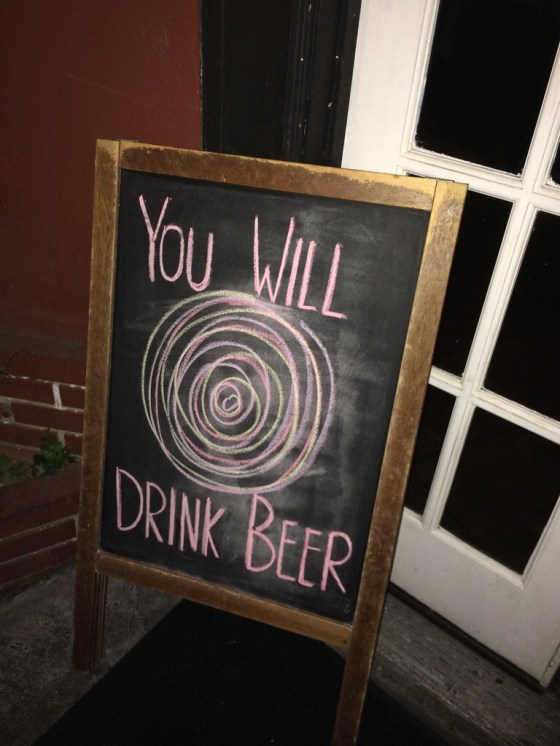 YOU WILL
DRINK BEER